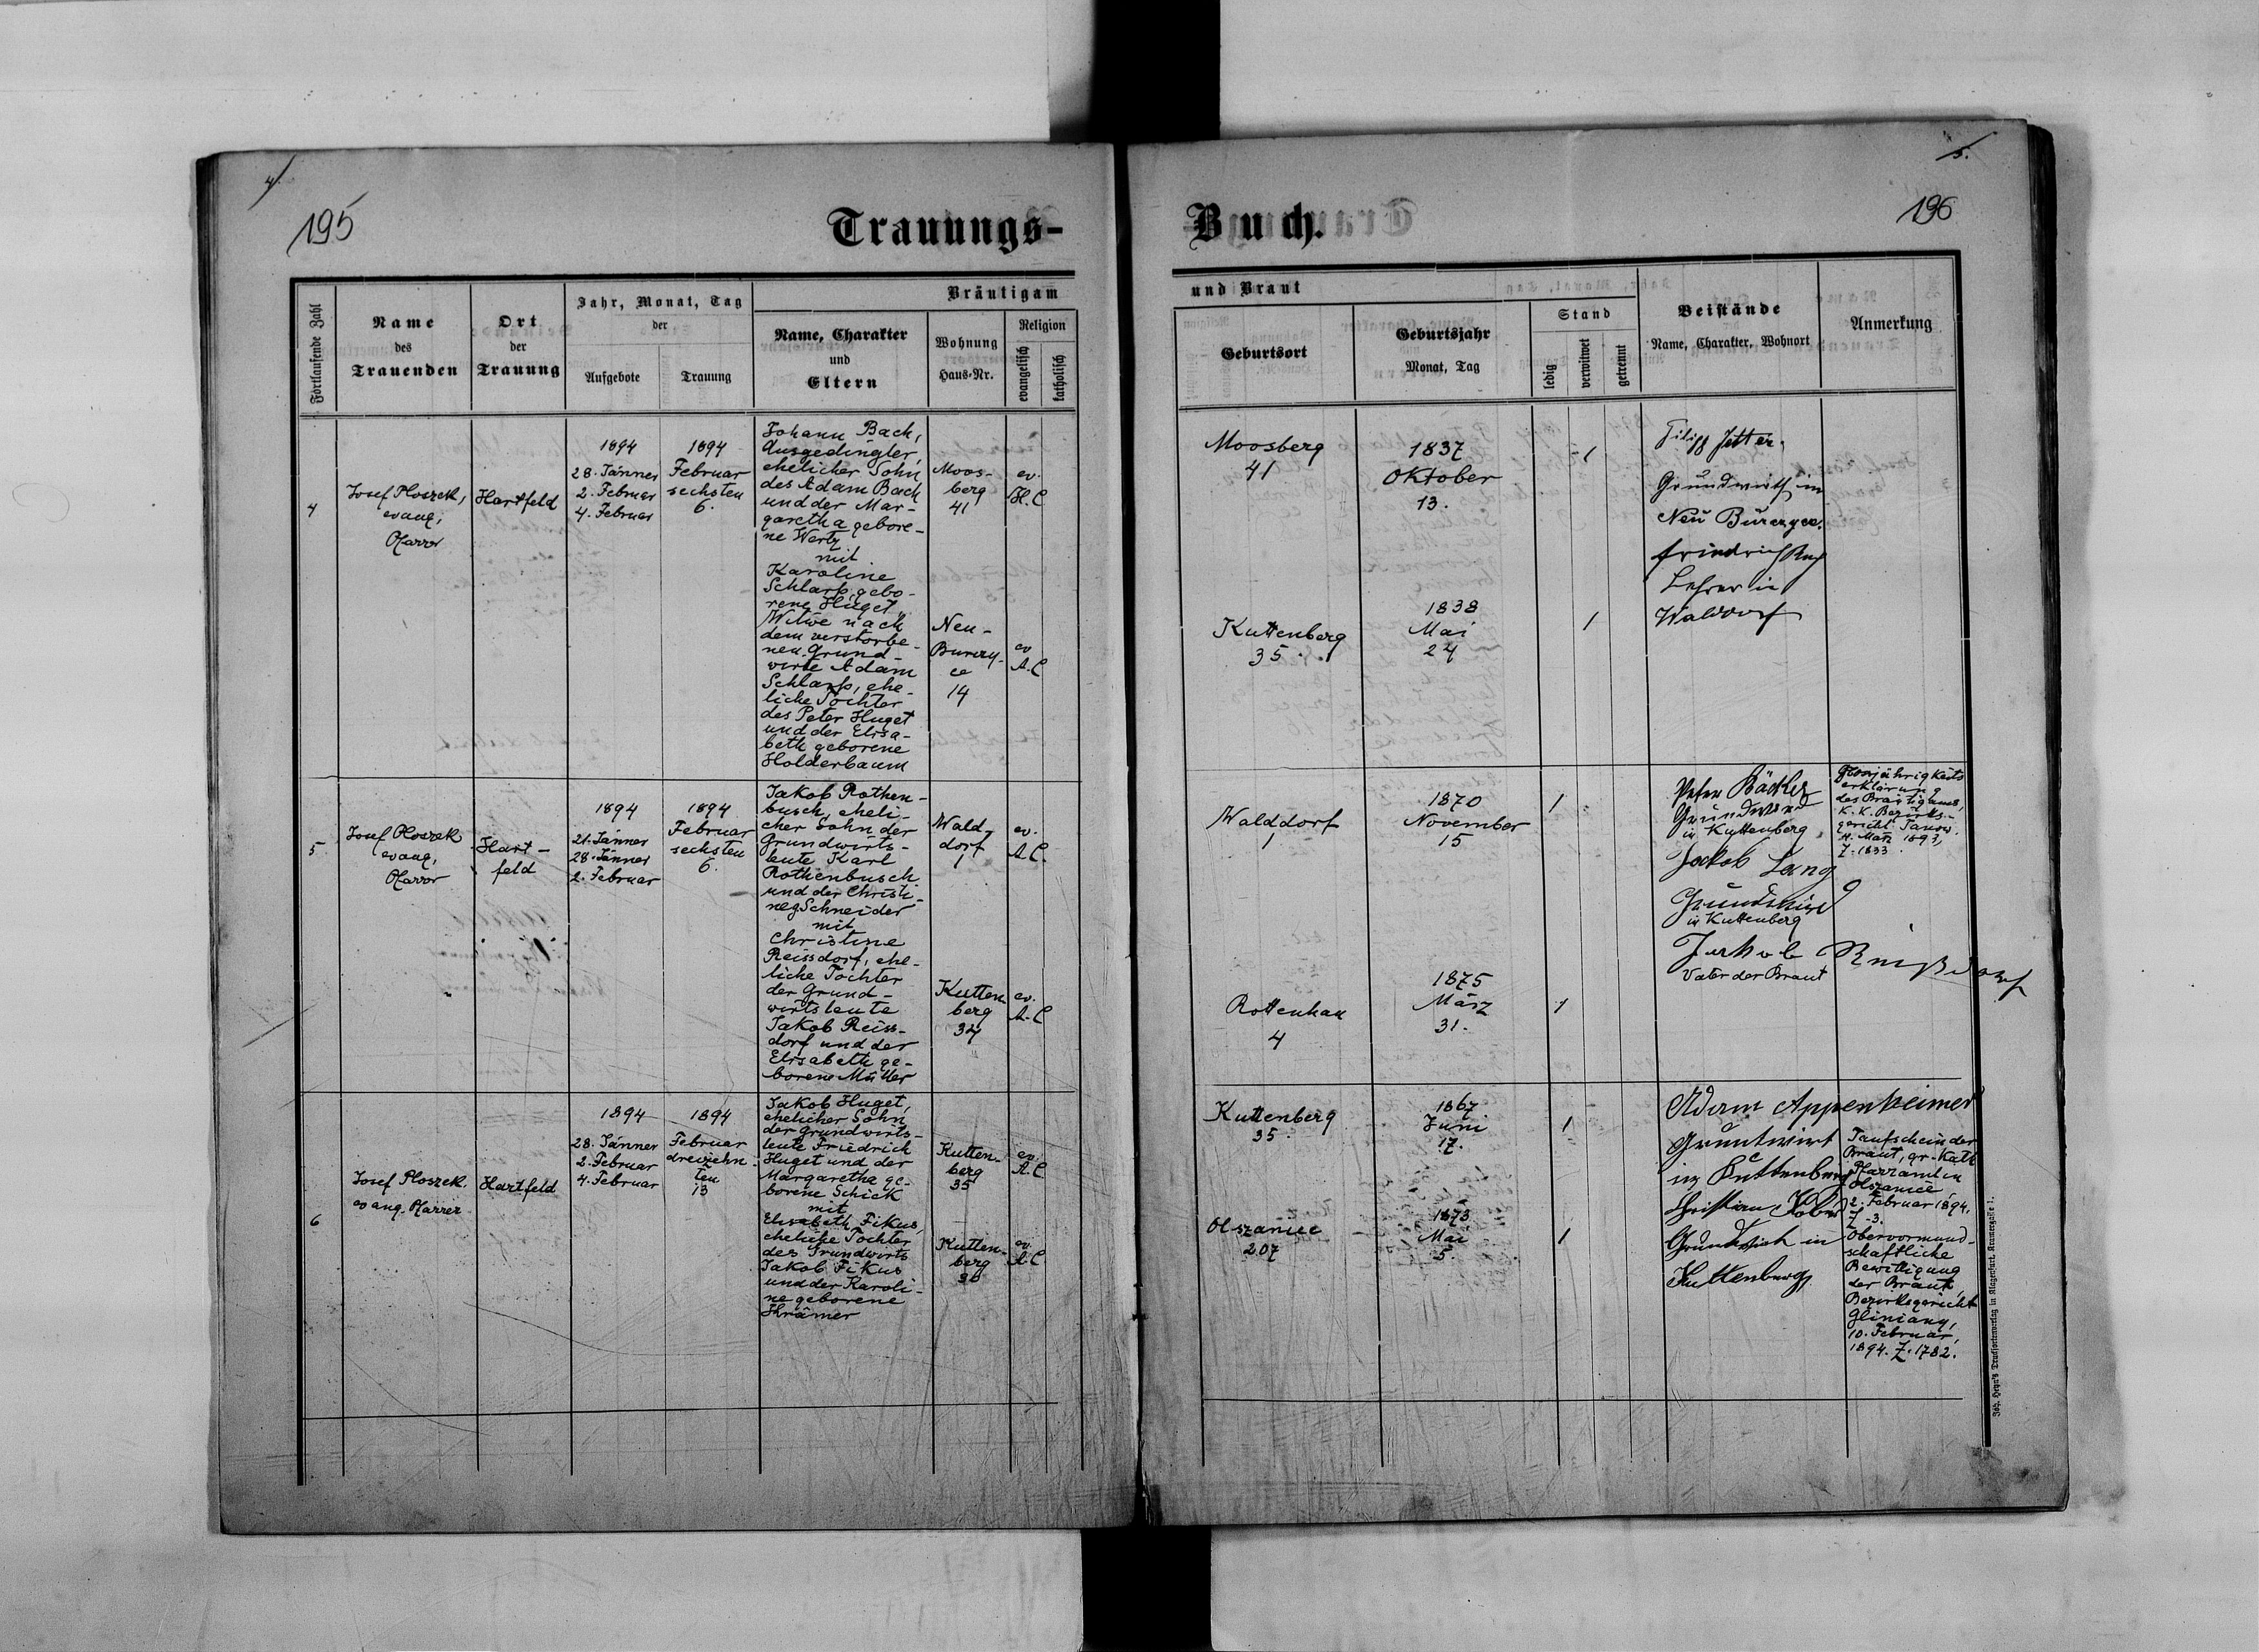 4.
195
Trauungs-
Fortlaufende Zahl
Name
des
Trauenden
Ort
der
Trauung
Jahr, Monat, Tag
der
Aufgebote
Trauung
Bräutigam
Name, Charakter
und
Eltern
Wohnung
Haus-Nr.
Religion
evangelisch
katholisch
4
Josef Ploszek,
evang.
Pfarrer
Hartfeld
1894
28. Jänner
2. Februar
4. Februar
1894
Februar
sechsten
6.
Johann Bach,
Ausgedingler,
ehelicher Sohn
des Adam Bach
und der Mar-
garetha gebore-
ne Wertz
mit
Karoline
Schlarp, gebo-
rene Huget,
Witwe nach
dem verstorbe-
nen Grund-
wirte Adam
Schlarp, ehe-
liche Tochter
des Peter Huget
und der Elisa-
beth geborene
Holderbaum
Moos-
berg
41
ev.
H. C
Neu-
Burczy-
ce
14
ev
A. C
5
Josef Ploszek
evang.
Pfarrer
Hart-
feld
1894
21. Jänner
28. Jänner
2. Februar
1894
Februar
sechsten
6.
Jakob Rothen-
busch, eheli-
cher Sohn der
Grundwirts-
leute Karl
Rothenbusch
und der Christi-
ne g Schneider
mit
Christine
Reissdorf, ehe-
liche Tochter
der Grund-
wirtsleute
Jakob Reiss-
dorf und der
Elisabeth ge-
borene Müller
Wald-
dorf
1
ev.
A. C.
Kutten-
berg
34
ev.
A. C
6
Josef Ploszek.
evang. Pfarrer
Hartfeld
1894
28. Jänner
2. Februar
4. Februar
1894
Februar
dreizehn-
ten
13
Jakob Huget,
ehelicher Sohn
der Grundwirts-
leute Friedrich
Huget und der
Margaretha ge-
borene Schick
mit
Elisabeth Fikus,
eheliche Tochter
des Grundwirts
Jakob Fikus
und der Karoli-
ne geborene
Krämer
Kutten-
berg
35
ev.
A. C
Kutten-
berg
30
ev.
A. C
5.
196
Buch.
und Braut
Geburtsort
Geburtsjahr
Monat, Tag
Stand
ledig
verwitwet
getrennt
Beistände
Name, Charakter, Wohnort
Anmerkung
Moosberg
41
1837
Oktober
13.
1
Filipp Jetter.
Grundwirth in
Neu Burczyce.
Friedrich
Lehrer in
Walddorf
Kuttenberg
35.
1838
Mai
24
1
Walddorf
1
1870
November
15
1
Peter Bäcker
Grundwirt
in Kuttenberg
Jakob Lang
Grundwirt
in Kuttenberg
Jakob Reißdorf
Vater der Braut
Grosjährigkeits
erklärung
des Bräutigams,
K. K. Bezirks-
gericht Janow.
11. März 1893,
Z. 1833.
Rottenhan
4
1875
März
31.
1
Kuttenberg
35.
1867
Juni
17.
1
Adam Appenheimer
Gruntwirt
in Kuttenberg
Christian Kobus
Grundwirth in
Kuttenberg
Taufschein der
Braut, gr-Kath
Pfarramt in
Olszanice
2. Februar 1894.
Z. 3.
Obervormund-
schaftliche
Bewilligung
der Braut,
Bezirksgericht
Gliniany,
10. Februar,
1894. Z. 1782.
Olszanice
207
1873
Mai
5.
1
Joh. Heyn's Drucksortenverlag in Klagenfurt, Kramergasse 1.